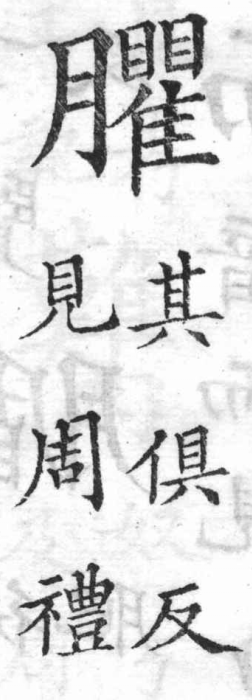 臞
其俱反
見周禮